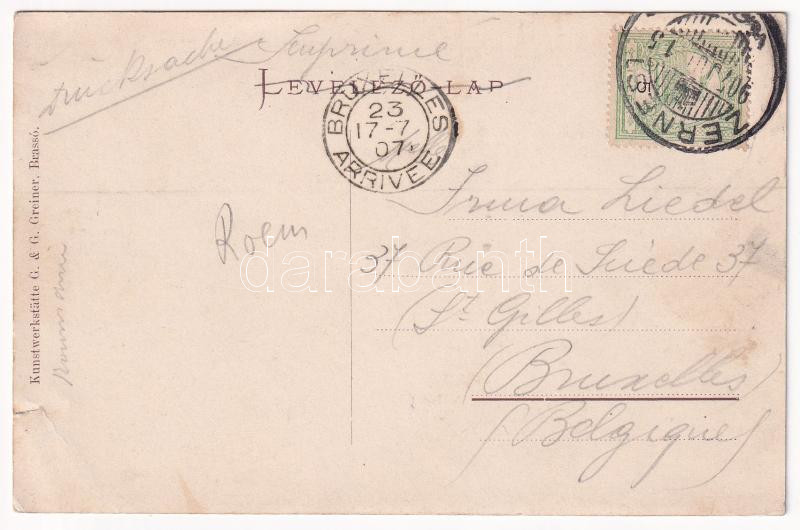 Drucksache Imprimé
LEVELEZŐ-LAP
5
ZERNEST
907
15
BRUXELLES
23
17-7
07
ARRIVEE
Mlle
Irma Liedel
37 Rue de Suède 37
(St Gilles)
(Bruxelles)
(Belgique)
Roem
darabanth
Kunstwerkstätte G. & G. Greiner, Brassó.